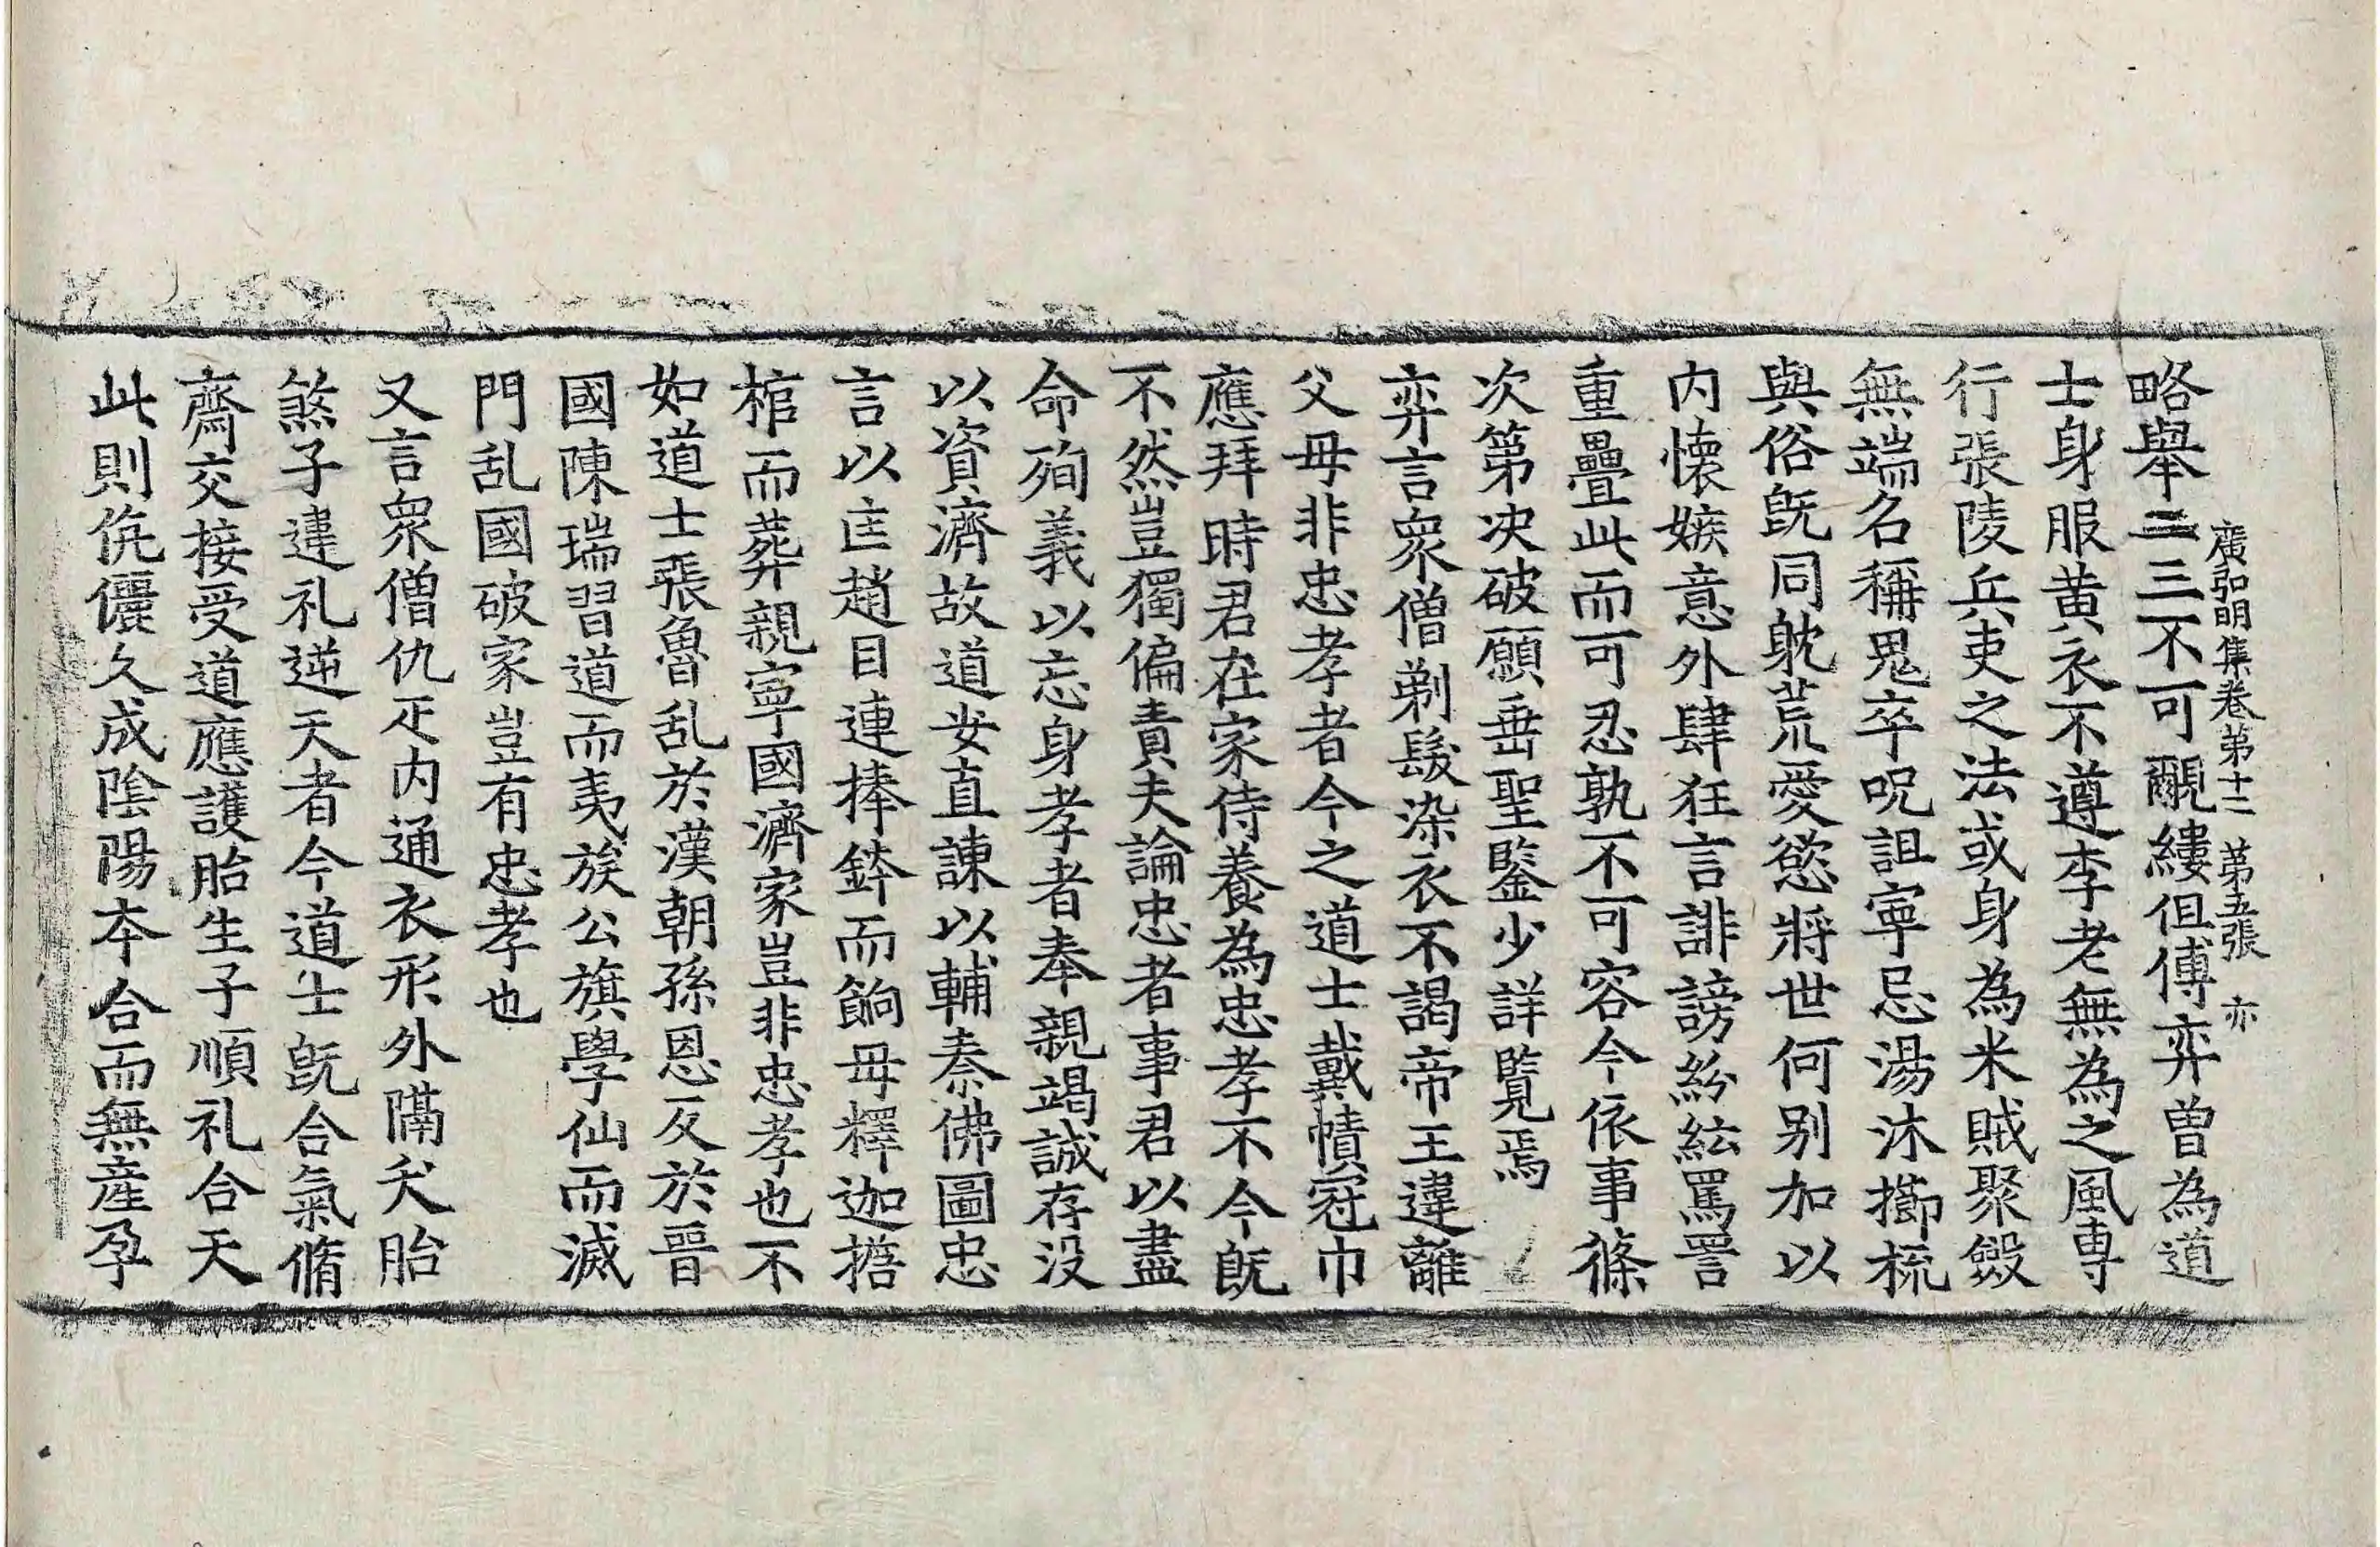 廣弘明集卷第十二 第五張 亦
略舉二三不可覼縷但傅弈曾為道
士身服黃衣不遵李老無為之風專
行張陵兵吏之法或身為米賊聚斂
無端名稱鬼卒呪詛寧忌湯沐擳梳
與俗旣同躭荒愛慾將世何別加以
內懷嫉意外肆狂言誹謗紛紜罵詈
重疊此而可忍孰不可容今依事條
次第決破願垂聖鑒少詳覽焉
弈言眾僧剃髮染衣不謁帝王違離
父母非忠孝者今之道士戴幘冠巾
應拜時君在家侍養為忠孝不今旣
不然豈獨偏責夫論忠者事君以盡
命殉義以忘身孝者奉親竭誠存沒
以資濟故道安直諫以輔秦佛圖忠
言以匡趙目連捧鉢而餉母釋迦擔
棺而葬親寧國濟家豈非忠孝也不
如道士張魯乱於漢朝孫恩反於晉
國陳瑞習道而夷族公旗學仙而滅
門乱國破家豈有忠孝也
又言眾僧仇疋內通衣形外隔夭胎
煞子違礼逆天者今道士旣合氣脩
齋交接受道應護胎生子順礼合天
此則伉儷久成陰陽本合而無產孕